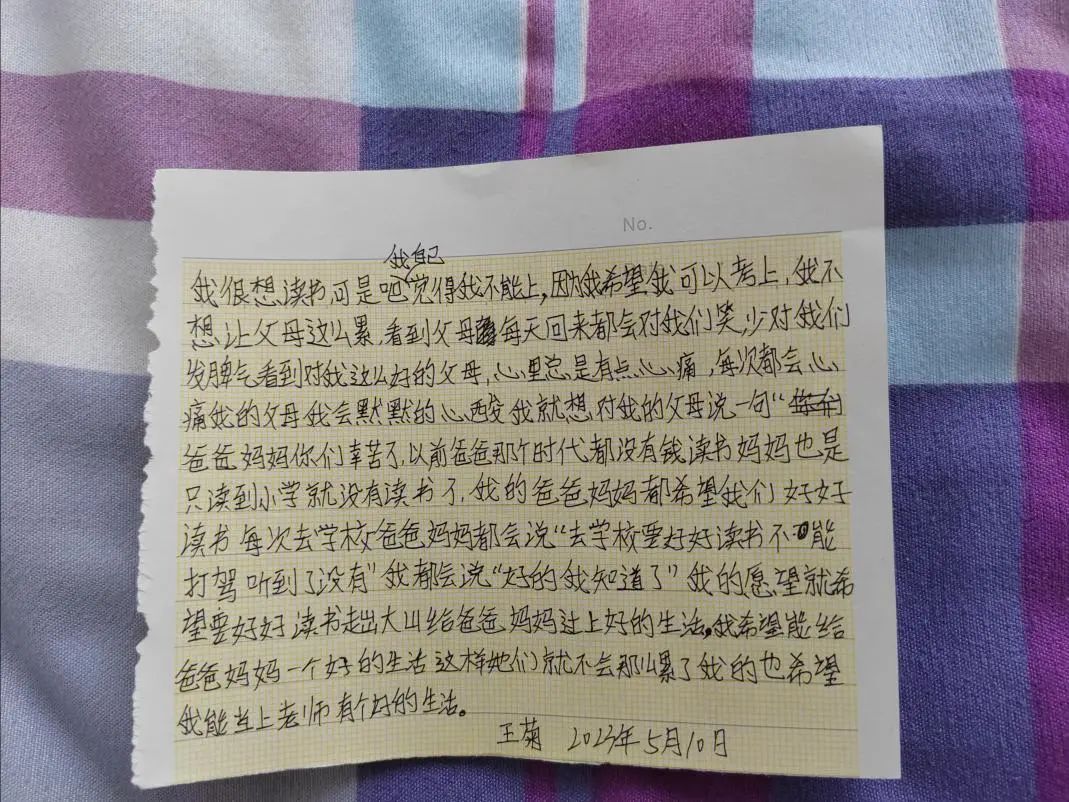 No.
我自己
我很想读书可是吧觉得我不能上,因为我希望我可以考上,我不
想让父母这么累,看到父母每天回来都会对我们笑,少对我们
发脾气看到对我这么好的父母,心里总是有点心痛,每次都会心
痛我的父母我会默默的心酸我就想对我的父母说一句“
爸爸妈妈你们幸苦了,以前爸爸那个时代都没有钱读书妈妈也是
只读到小学就没有读书了,我的爸爸妈妈都希望我们好好
读书每次去学校爸爸妈妈都会说“去学校要好好读书不能
打驾听到了没有”我都会说“好的我知道了”我的愿望就希
望要好好读书走出大山给爸爸妈妈过上好的生活。我希望能给
爸爸妈妈一个好的生活这样她们就不会那么累了我的也希望
我能当上老师有个好的生活。
王菊 2023年5月10日